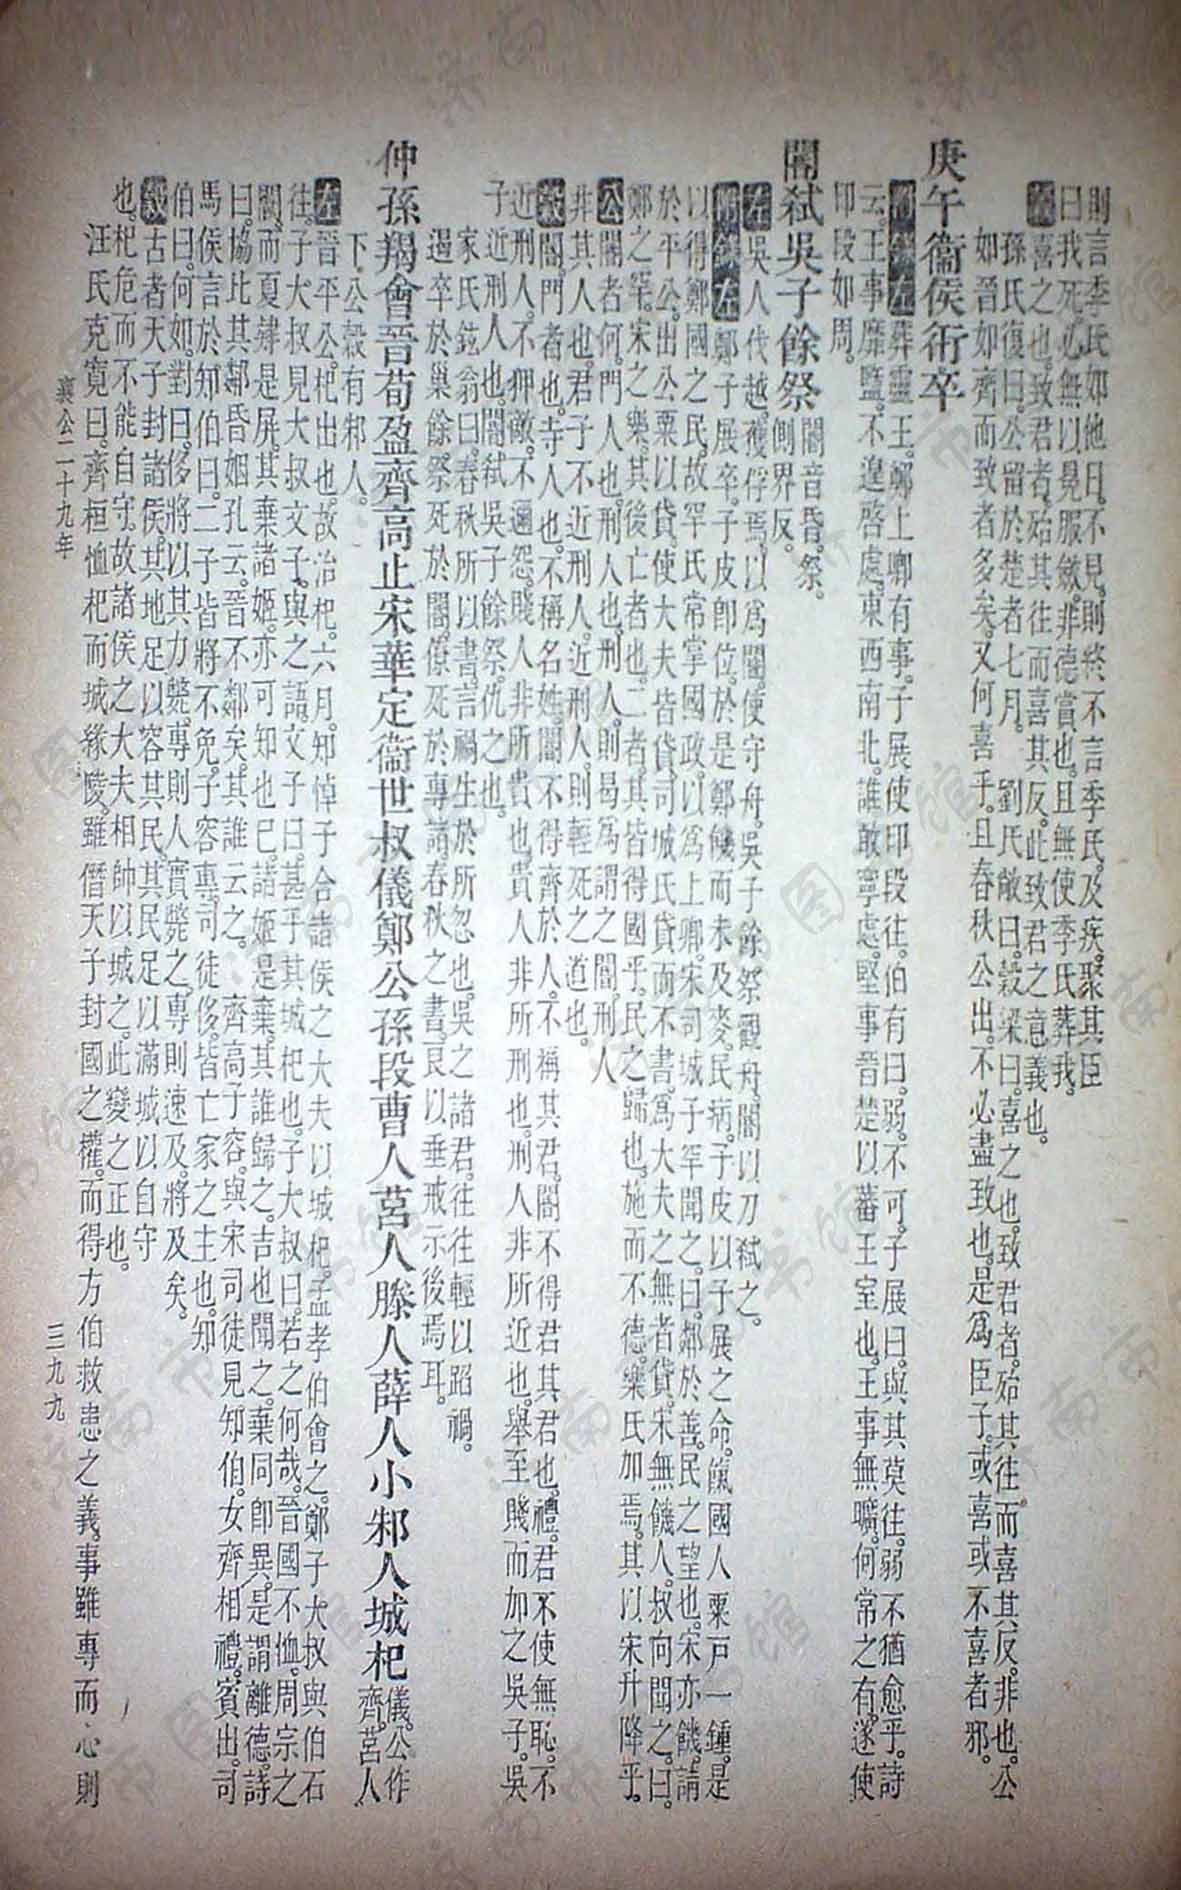 則言季氏如他日。不見。則終不言季氏。及疾。聚其臣
曰。我死。必無以冕服斂。非德賞也。且無使季氏葬我。
穀喜之也。致君者。殆其往而喜其反。此致君之意義也。
孫氏復曰。公留於楚者七月。 劉氏敞曰。穀梁曰。喜之也。致君者。殆其往。而喜其反。非也。公
如晉如齊而致者多矣。又何喜乎。且春秋公出。不必盡致也。是爲臣子。或喜或不喜者邪。
庚午衞侯衎卒
附錄左葬靈王。鄭上卿有事。子展使印段往。伯有曰。弱。不可。子展曰。與其莫往。弱不猶愈乎。詩
云。王事靡盬。不遑啓處。東西南北。誰敢寧處。堅事晉楚。以蕃王室也。王事無曠。何常之有。遂使
印段如周。
閽弒吳子餘祭 閽音昏。祭。
側界反。
左吳人伐越。獲俘焉。以爲閽。使守舟。吳子餘祭觀舟。閽以刀弒之。
附錄左鄭子展卒。子皮卽位。於是鄭饑而未及麥。民病。子皮以子展之命。餼國人粟。戶一鍾。是
以得鄭國之民。故罕氏常掌國政。以爲上卿。宋司城子罕聞之。曰。鄰於善。民之望也。宋亦饑。請
於平公。出公粟以貸。使大夫皆貸。司城氏貸而不書。爲大夫之無者貸。宋無饑人。叔向聞之。曰。
鄭之罕。宋之樂。其後亡者也。二者。其皆得國乎。民之歸也。施而不德。樂氏加焉。其以宋升降乎。
公閽者何。門人也。刑人也。刑人。則曷爲謂之閽。刑人
非其人也。君子不近刑人。近刑人。則輕死之道也。
穀閽。門者也。寺人也。不稱名姓。閽不得齊於人。不稱其君。閽不得君其君也。禮。君不使無恥。不
近刑人。不狎敵。不邇怨。賤人非所貴也。貴人非所刑也。刑人非所近也。舉至賤而加之吳子。吳
子近刑人也。閽弒吳子餘祭。仇之也。
家氏鉉翁曰。春秋所以書。言禍生於所忽也。吳之諸君。往往輕以蹈禍。
遏卒於巢。餘祭死於閽。僚死於專諸。春秋之書。艮以垂戒示後焉耳。
仲孫羯會晉荀盈齊高止宋華定衞世叔儀鄭公孫段曹人莒人滕人薛人小邾人城杞 儀。公作
齊。莒人
下。公穀有邾人。
左晉平公。杞出也。故治杞。六月。知悼子合諸侯之大夫以城杞。孟孝伯會之。鄭子大叔與伯石
往。子大叔見大叔文子。與之語。文子曰。甚乎其城杞也。子大叔曰。若之何哉。晉國不恤周宗之
闕。而夏肄是屏。其棄諸姬。亦可知也已。諸姬是棄。其誰歸之。吉也聞之。棄同卽異。是謂離德。詩
曰。協比其鄰。昏姻孔云。晉不鄰矣。其誰云之。 齊高子容。與宋司徒見知伯。女齊相禮。賓出。司
馬侯言於知伯曰。二子皆將不免。子容專。司徒侈。皆亡家之主也。知
伯曰。何如。對曰。侈將以其力斃。專則人實斃之。專則速及。將及矣。
穀古者天子封諸侯。其地足以容其民。其民足以滿城以自守
也。杞危而不能自守。故諸侯之大夫相帥以城之。此變之正也。
汪氏克寬曰。齊桓恤杞而城緣陵。雖僭天子封國之權。而得方伯救患之義。事雖專而心則
襄公二十九年 三九九